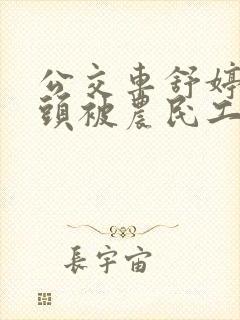 公交車舒婷
頭被農民工
長宇宙